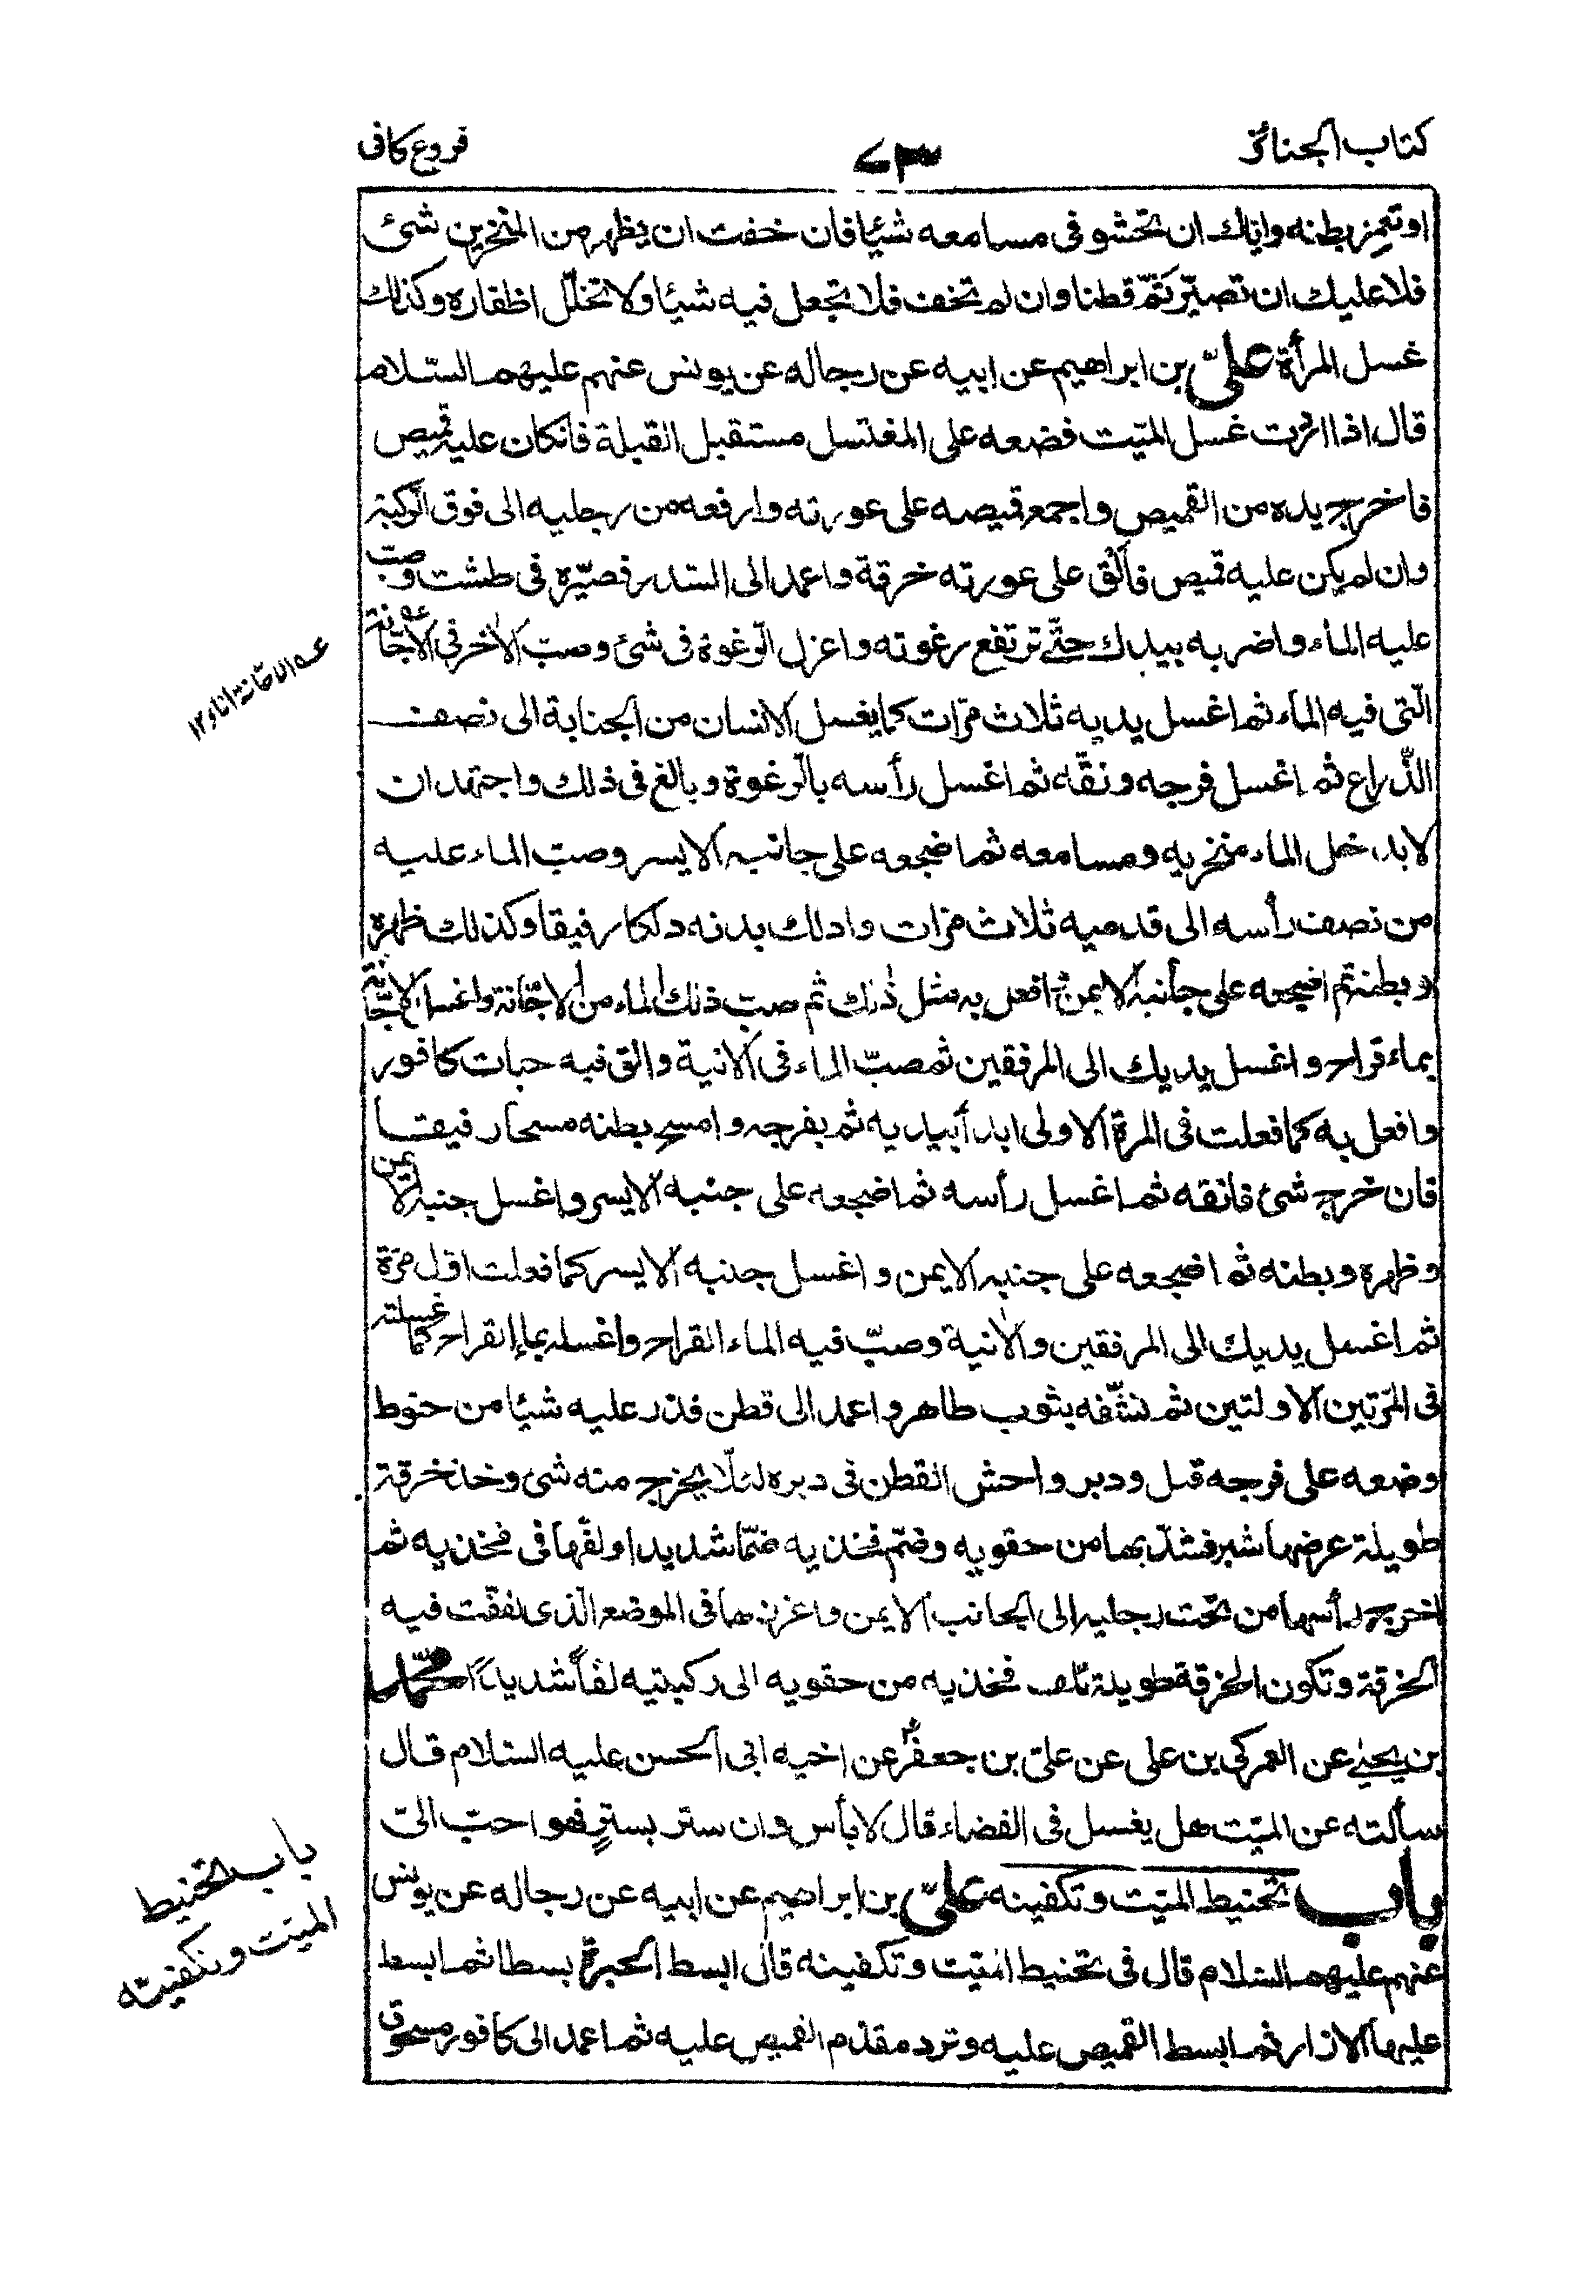 كتاب الجنائز
٧٣
فروع كافى
او تغمز بطنه واياك ان تحشو فى مسامعه شيئا فان خفت ان يظهر من المنخرين شئ
فلا عليك ان تصيّر ثمّ قطنا وان لم تخف فلا تجعل فيه شيئا ولا تخلل اظفاره وكذلك
غسل المرأة علىّ بن ابراهيم عن ابيه عن رجاله عن يونس عنهم عليهم السّلام
قال اذا اردت غسل الميّت فضعه على المغتسل مستقبل القبلة فانكان عليه قميص
فاخرج يده من القميص واجمع قميصه على عورته وارفعه من رجليه الى فوق الرّكبة
وان لم يكن عليه قميص فالق على عورته خرقة واعمد الى السّدر فصيّره فى طشت وصبّ
عليه الماء واضربه بيدك حتّى ترتفع رغوته واعزل الرّغوة فى شئ وصبّ الاخر فى الاجّانة
الّتى فيه الماء ثم اغسل يديه ثلاث مرّات كما يغسل الانسان من الجنابة الى نصف
الذّراع ثم اغسل فرجه ونقّه ثم اغسل رأسه بالرّغوة وبالغ فى ذلك واجتهد ان
لا يدخل الماء منخريه ومسامعه ثم اضجعه على جانبه الايسر وصبّ الماء عليه
من نصف رأسه الى قدميه ثلاث مرّات وادلك بدنه دلكا رفيقا وكذلك ظهره
وبطنه ثم اضجعه على جانبه الايمن وافعل به مثل ذلك ثم صبّ ذلك الماء من الاجّانة واغسل الاجّانة
بماء قراح واغسل يديك الى المرفقين ثم صبّ الماء فى الانية والق فيه حبات كافور
وافعل به كما فعلت فى المرة الاولى ابدأ بيديه ثم بفرجه وامسح بطنه مسحا رفيقا
فان خرج شئ فانقه ثم اغسل رأسه ثم اضجعه على جنبه الايسر واغسل جنبه الايمن
وظهره وبطنه ثم اضجعه على جنبه الايمن واغسل جنبه الايسر كما فعلت اوّل مرّة
ثم اغسل يديك الى المرفقين والانية وصبّ فيه الماء القراح واغسله بماء القراح كما غسلته
فى المرّتين الاولتين ثم نشّفه بثوب طاهر واعمد الى قطن فذر عليه شيئا من حنوط
وضعه على فرجه قبل ودبر واحش القطن فى دبره لئلّا يخرج منه شئ وخذ خرقة
طويلة عرضها شبر فشدّ بها من حقويه وضمّ فخذيه ضمّا شديدا ولفّها فى فخذيه ثم
اخرج رأسها من تحت رجليه الى الجانب الايمن واغرزها فى الموضع الّذى لففّت فيه
الخرقة وتكون الخرقة طويلة تلف فخذيه من حقويه الى ركبتيه لفّا شديدا محمّد
بن يحيى عن العمركى بن على عن علىّ بن جعفر عن اخيه ابى الحسن عليه السّلام قال
سألته عن الميّت هل يغسل فى الفضاء قال لا بأس وان ستر بستر فهو احبّ الىّ
باب تحنيط الميّت وتكفينه علىّ بن ابراهيم عن ابيه عن رجاله عن يونس
عنهم عليهم السّلام قال فى تحنيط الميّت وتكفينه قال ابسط الحبرة بسطا ثم ابسط
عليها الازار ثم ابسط القميص عليه وترد مقدّم القميص عليه ثم اعمد الى كافور مسحوق
عه الاجّانة اناء ١٢
باب تحنيط
الميّت وتكفينه